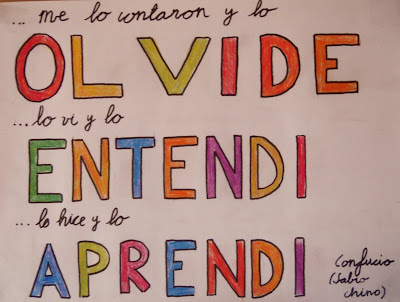 ... me lo contaron y lo
OLVIDE
... lo vi y lo
ENTENDI
... lo hice y lo
APRENDI
Confucio
(Sabio
chino)